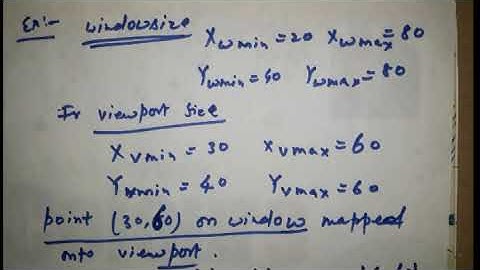 Ex:- windowsize Xwmin=20 Xwmax=80
Ywmin=40 Ywmax=80
Ir viewport size
Xvmin = 30 Xvmax=60
Yvmin = 40 Yvmax=60
point (30,60) on window mapped
onto viewport.